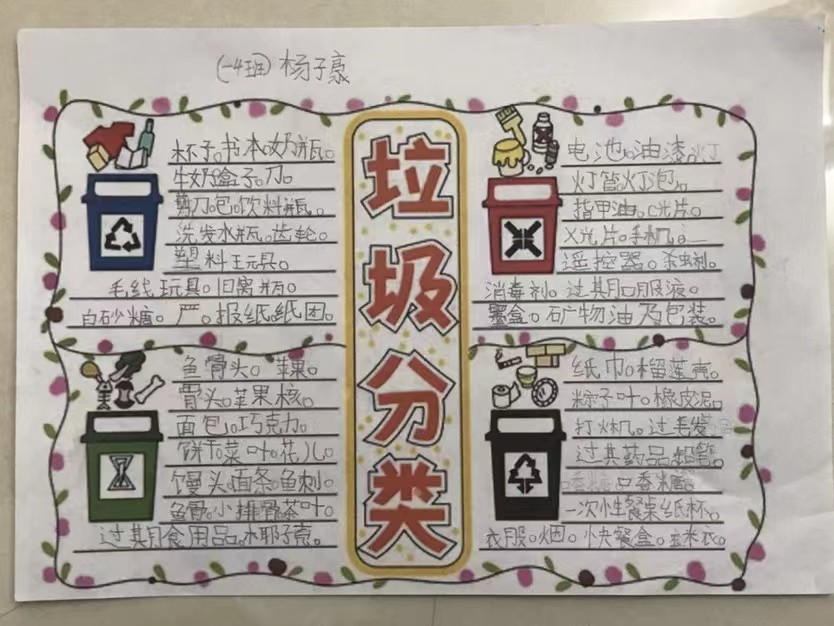 (一4班) 杨子豪
垃圾分类
杯子。书本。奶瓶。
牛奶盒子。刀。
剪刀。包。饮料瓶。
洗发水瓶。齿轮。
塑料玩具。
毛线玩具。旧窗
白砂糖。报纸。纸团。
电池。油漆。灯
灯管。灯泡。
指甲油。光片。
X光片。手机。
遥控器。杀虫剂。
消毒剂。过期口服液。
墨盒。矿物油及包装。
鱼骨头。苹果。
骨头。苹果核。
面包。巧克力。
饼干。菜叶。花儿。
馒头。面条。鱼刺。
鱼骨。小排骨。茶叶。
过期食用品。椰子壳。
纸巾。榴莲壳。
粽子叶。橡皮泥。
打火机。过毛发
过其药品。铅笔。
口香糖
一次性餐桌纸杯。
衣服。烟。快餐盒。玉米衣。